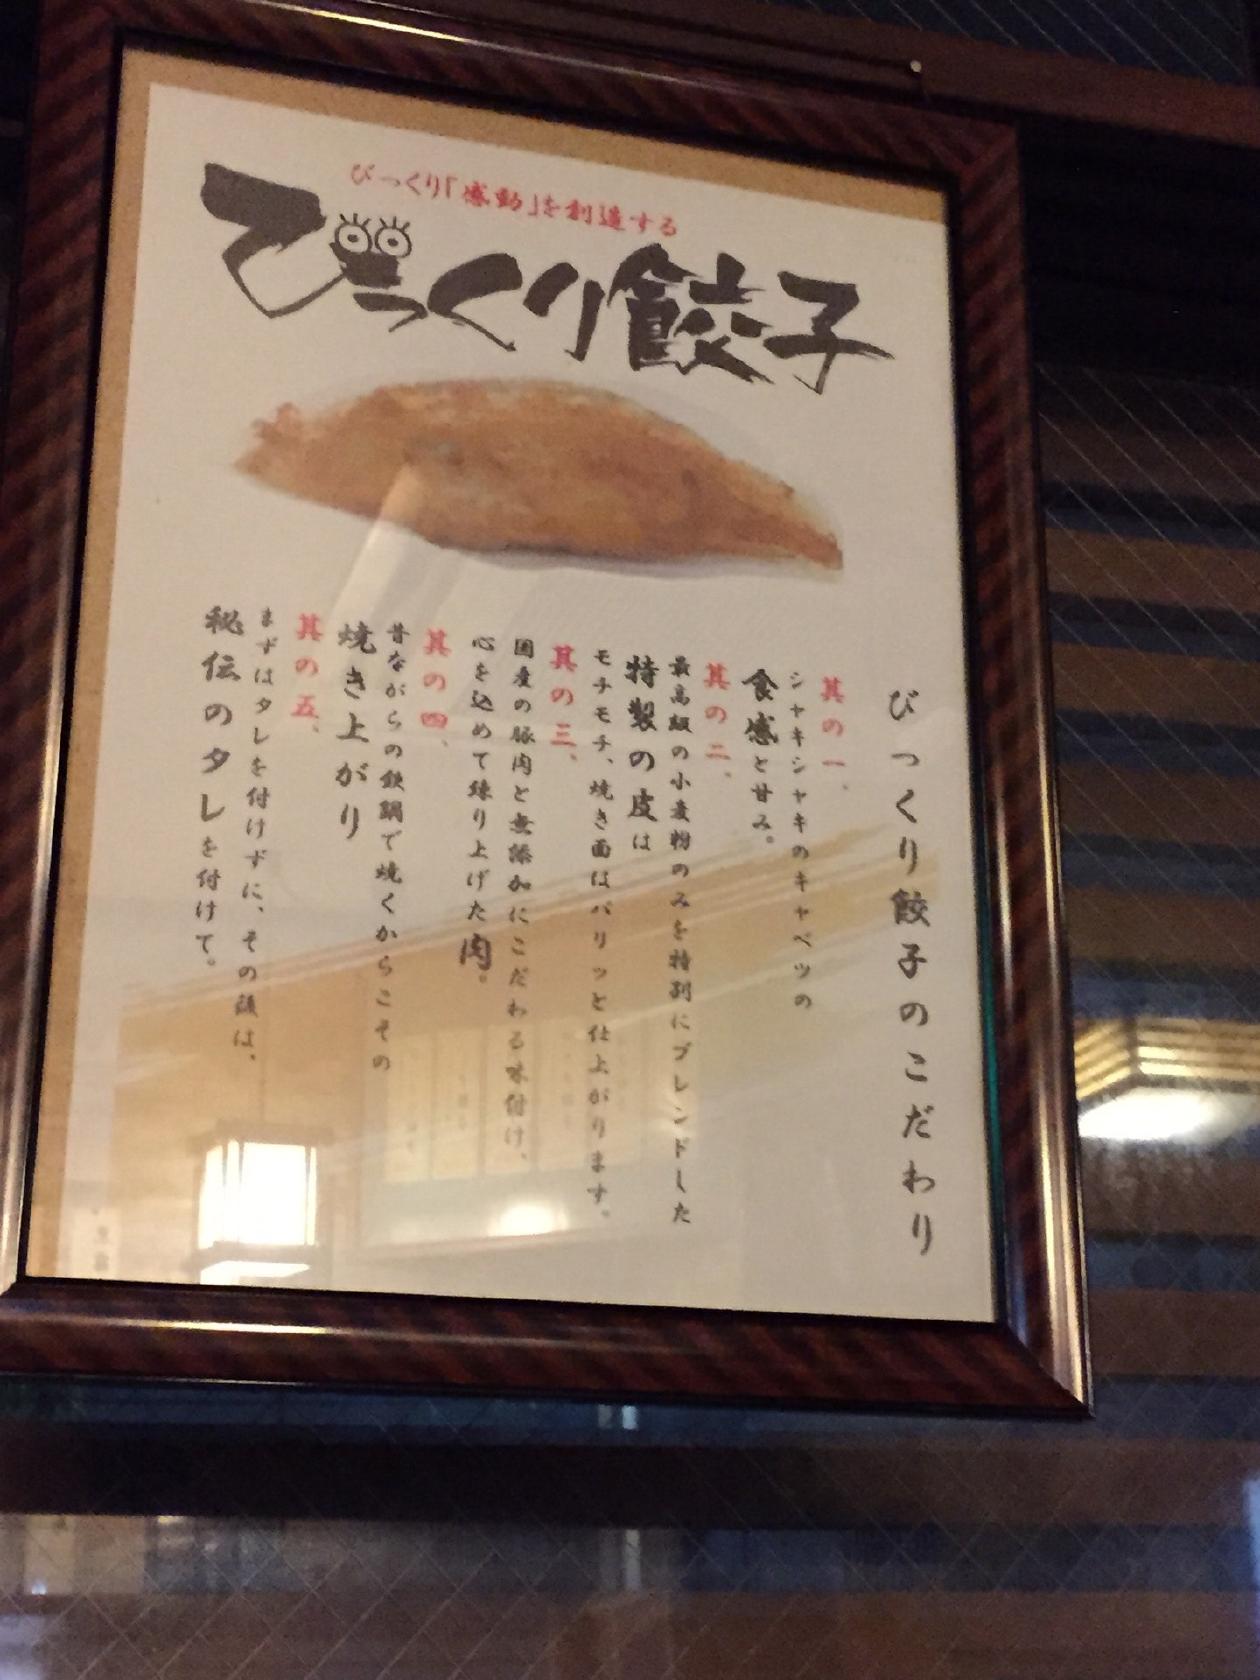 びっくり「感動」を創造する
びっくり餃子
びっくり餃子のこだわり
其の一、
シャキシャキのキャベツの
食感と甘み。
其の二、
最高級の小麦粉のみを特別にブレンドした
特製の皮は
モチモチ、焼き面はパリッと仕上がります。
其の三、
国産の豚肉と無添加にこだわる味付け、
心を込めて練り上げた肉。
其の四、
昔ながらの鉄鍋で焼くからこその
焼き上がり
其の五、
まずはタレを付けずに、その後は、
秘伝のタレを付けて。